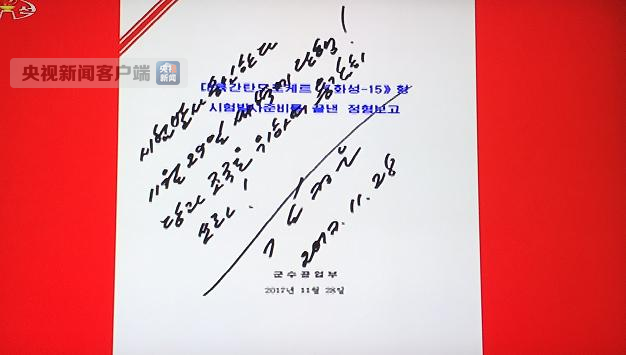 央视新闻客户端
央视
新闻
대륙간탄도로케트 《화성-15》형
시험발사준비를 끝낸 정형보고
시험발사 승인한다
11월 29일 새벽에 단행!
당과 조국을 위하여 용감히
쏘라!
김정은
2017.11.28
군수공업부
2017년 11월 28일